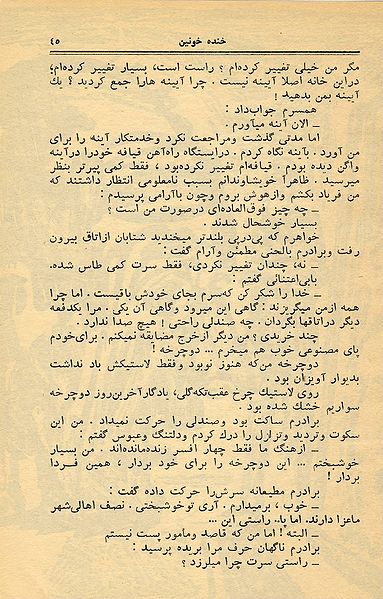 خنده خونین
٤٥
مگر من خیلی تغییر کرده‌ام ؟ راست است، بسیار تغییر کرده‌ام،
دراین خانه اصلا آیینه نیست . چرا آیینه هارا جمع کردید ؟ یك
آیینه بمن بدهید !
همسرم جوابداد :
ــ الان آینه میآورم .
اما مدتی گذشت ومراجعت نکرد وخدمتکار آینه را برای
من آورد . بآینه نگاه کردم . درایستگاه راه‌آهن قیافه خودرا درآینه
واگن دیده بودم . قیافه‌ام تغییر نکرده‌بود ، فقط کمی پیرتر بنظر
میرسید . ظاهراً خویشاوندانم بسبب نامعلومی انتظار داشتند که
من فریاد بکشم وازهوش بروم وچون باآرامی پرسیدم :
ــ چه چیز فوق‌العاده‌ای درصورت من است ؟
بسیار خوشحال شدند .
خواهرم که پی‌درپی بلندتر میخندید شتابان ازاتاق بیرون
رفت وبرادرم بالحنی مطمئن وآرام گفت :
ــ نه، چندان تغییر نکردی، فقط سرت کمی طاس شده.
بابی‌اعتنائی گفتم :
ــ خدا را شکر کن که‌سرم بجای خودش باقیست . اما چرا
همه ازمن میگریزند : گاهی این میرود وگاهی آن یکی . مرا یکدفعه
دیگر دراتاقها بگردان . چه صندلی راحتی ! هیچ صدا ندارد .
چند خریدی ؟ من دیگر ازخرج مضایقه نمیکنم . برای‌خودم
پای مصنوعی خوب هم میخرم ... دوچرخه !
دوچرخه من‌که هنوز نوبود وفقط لاستیکش باد نداشت
بدیوار آویزان بود .
روی لاستیك چرخ عقب‌تکه‌گلی، یادگارآخرین‌روز دوچرخه
سواریم خشك شده بود .
برادرم ساکت بود وصندلی را حرکت نمیداد . من این
سکوت وتردید وتزلزل را درك کردم ودلتنگ وعبوس گفتم :
ــ ازهنگ ما فقط چهار افسر زنده‌مانده‌اند . من بسیار
خوشبختم ... این دوچرخه را برای خود بردار ، همین فردا
بردار !
برادرم مطیعانه سرش‌را حرکت داده گفت :
ــ خوب ، برمیدارم . آری توخوشبختی . نصف اهالی‌شهر
ماعزا دارند. اما پا.. راستی این ...
ــ البته ! اما من که قاصد ومأمور پست نیستم
برادرم ناگهان حرف مرا بریده پرسید :
ــ راستی سرت چرا میلرزد ؟